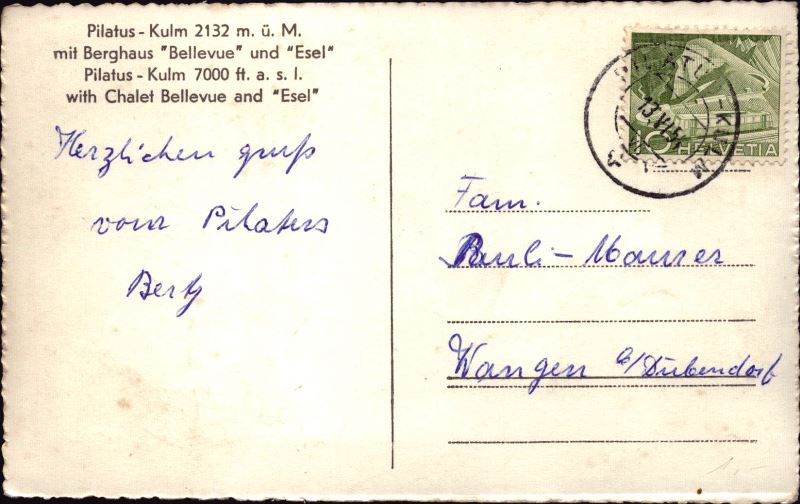 Pilatus - Kulm 2132 m. ü. M.
mit Berghaus "Bellevue" und "Esel"
Pilatus - Kulm 7000 ft. a. s. l.
with Chalet Bellevue and "Esel"
Herzlichen gruss
vom Pilatus
PILATUS-KULM
13.VI.5
10 HELVETIA
Fam.
Pauli-Maurer
Wangen b/Dübendorf
1.-